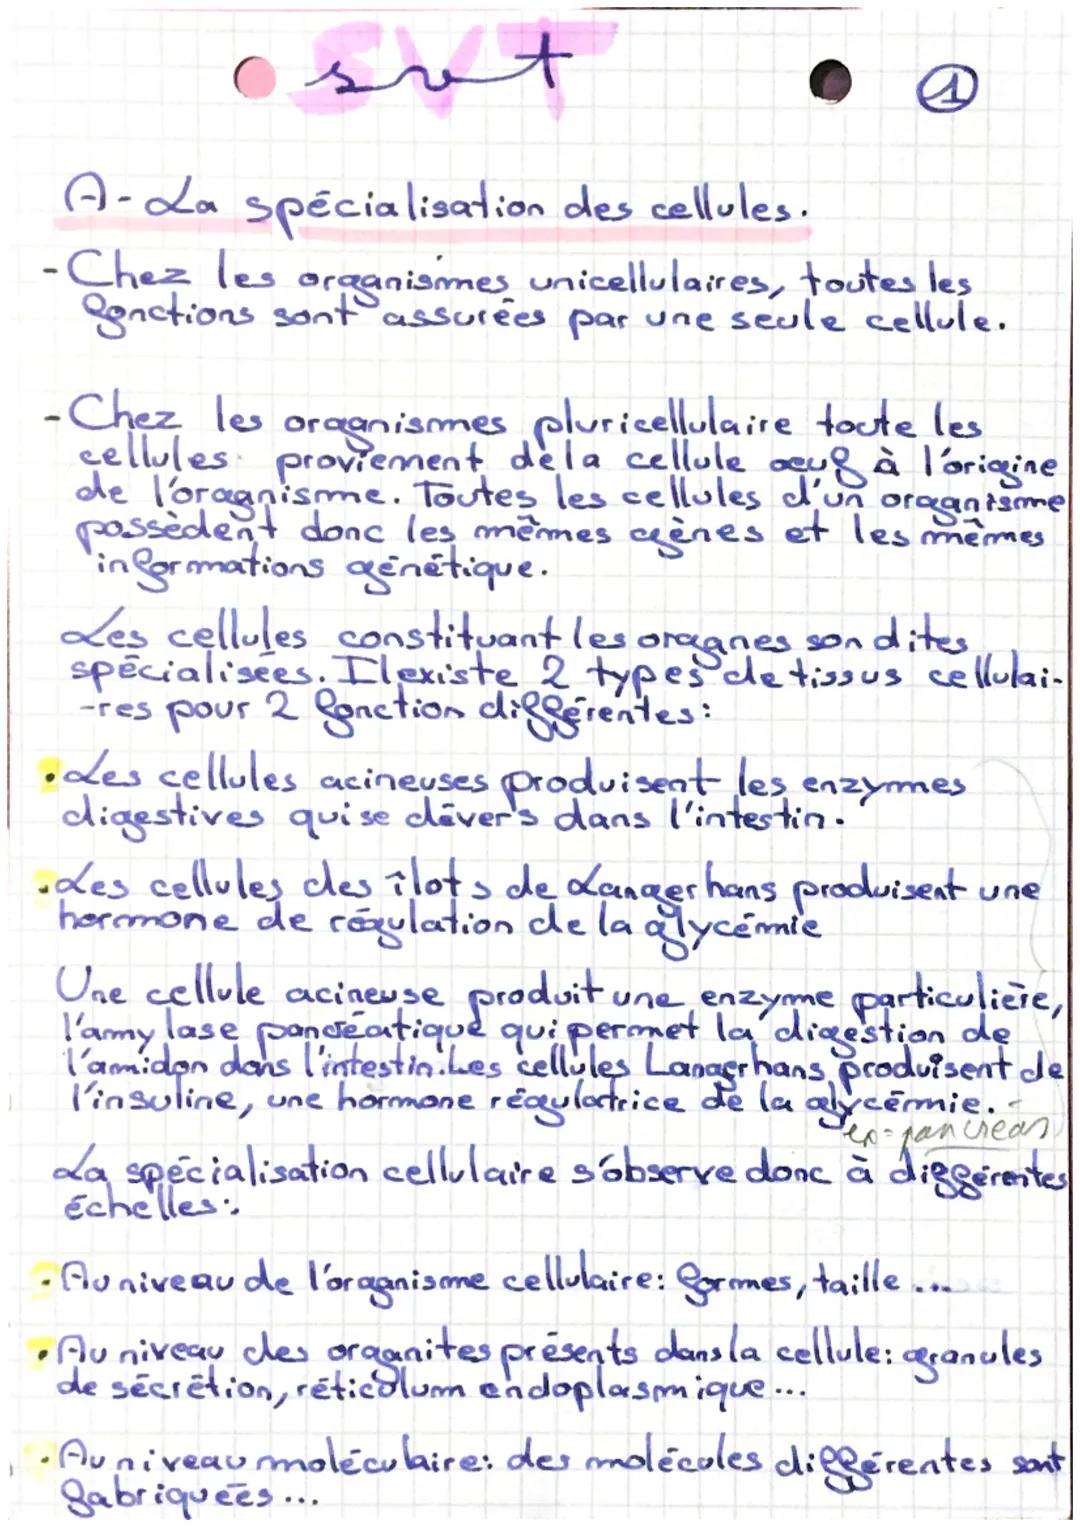 SVT
svt
1
A-La spécialisation des cellules.
-Chez les organismes unicellulaires, toutes les
fonctions sont assurées par une seule cellule.
-Chez les organismes pluricellulaire toute les
cellules proviennent de la cellule oeuf à l'origine
de l'organisme. Toutes les cellules d'un organisme
possèdent donc les mêmes gènes et les mêmes
informations génétique.
Les cellules constituant les organes son dites
spécialisées. Il existe 2 types de tissus cellulai-
-res pour 2 fonction différentes:
•Les cellules acineuses produisent les enzymes
digestives qui se dévers dans l'intestin.
•Les cellules des îlots de Langerhans produisent une
hormone de régulation de la glycémie
Une cellule acineuse produit une enzyme particulière,
l'amylase pancréatique qui permet la digestion de
l'amidon dans l'intestin. Les cellules Langerhans produisent de
l'insuline, une hormone régulatrice de la glycémie.
ex=pancréas
La spécialisation cellulaire s'observe donc à différentes
échelles:
•Au niveau de l'organisme cellulaire: formes, taille ...
•Au niveau des organites présents dans la cellule: granules
de sécrétion, réticulum endoplasmique...
•Au niveau moléculaire: des molécules différentes sont
fabriquées...